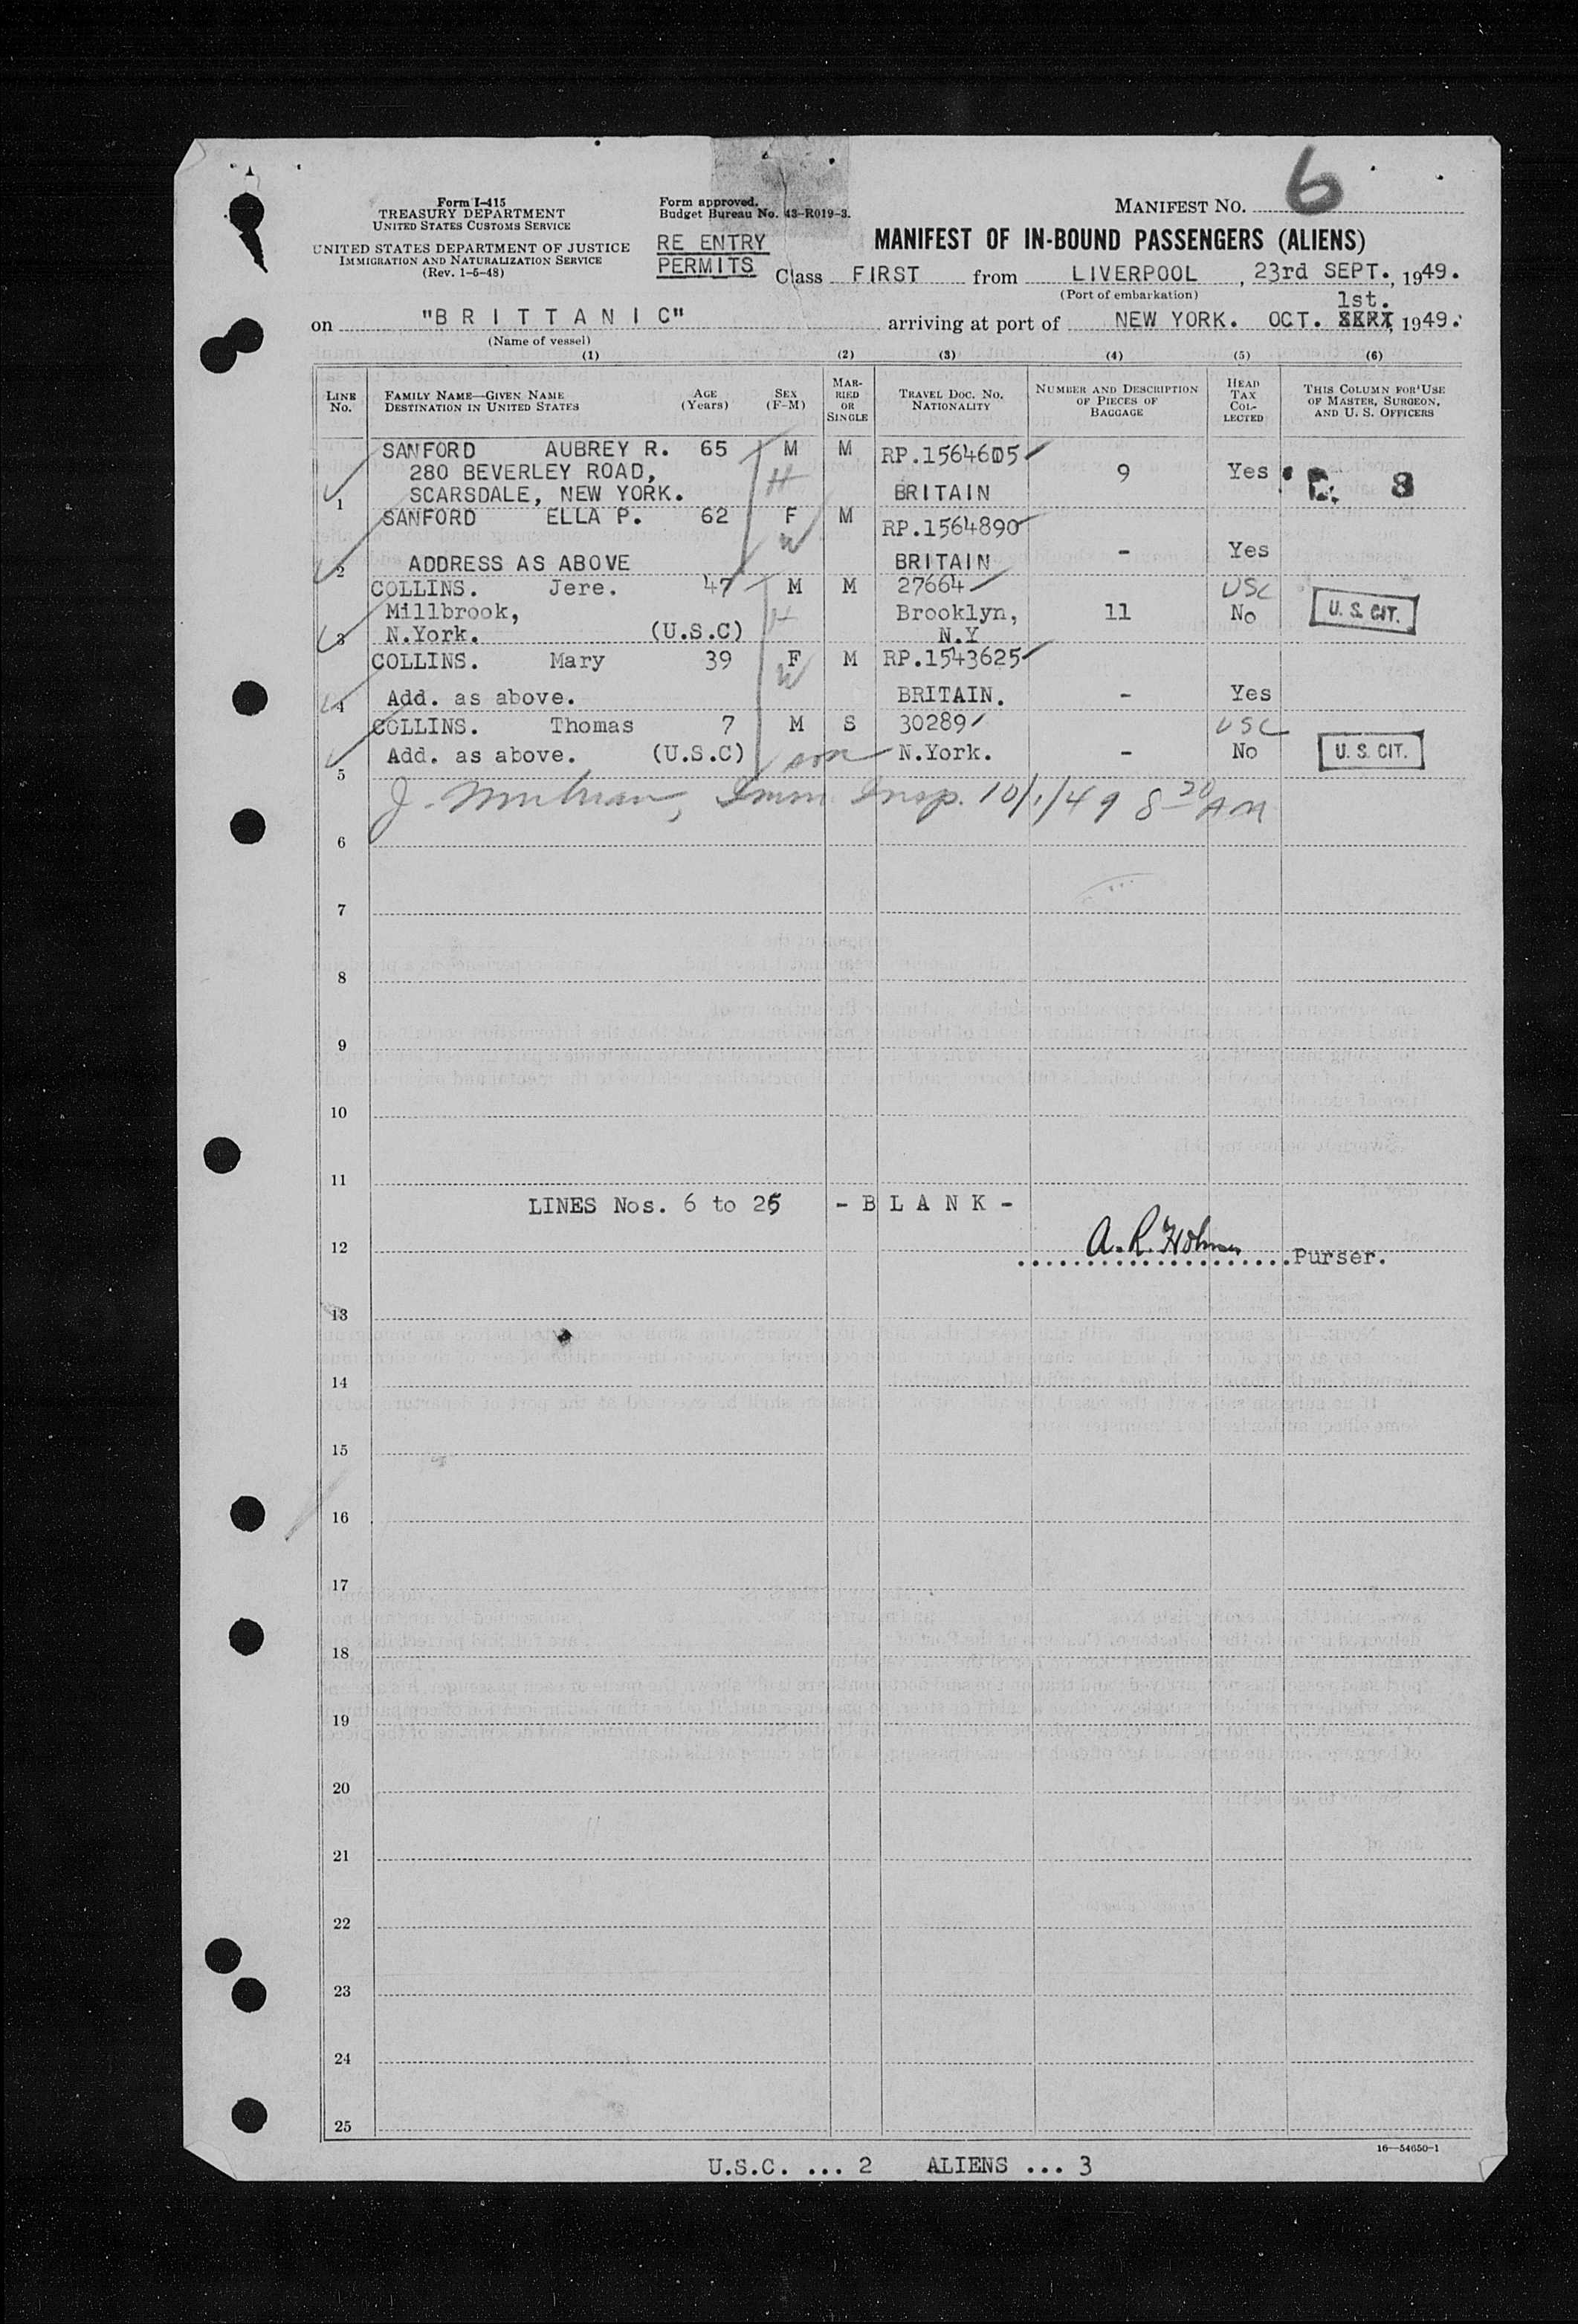 6
Form I-415
TREASURY DEPARTMENT
UNITED STATES CUSTOMS SERVICE
UNITED STATES DEPARTMENT OF JUSTICE
IMMIGRATION AND NATURALIZATION SERVICE
(Rev. 1-5-48)
Form approved.
Budget Bureau No. 43-R019-3.
RE ENTRY
PERMITS
MANIFEST NO.
MANIFEST OF IN-BOUND PASSENGERS (ALIENS)
Class FIRST from LIVERPOOL, 23rd SEPT., 1949.
(Port of embarkation)
1st.
on "BRITTANIC" arriving at port of NEW YORK. OCT. 1949.
(Name of vessel)
(1) (2) (3) (4) (5) (6)
LINE NO. FAMILY NAME—GIVEN NAME DESTINATION IN UNITED STATES AGE (Years) SEX (F-M) MARRIED OR SINGLE TRAVEL DOC. NO. NATIONALITY NUMBER AND DESCRIPTION OF PIECES OF BAGGAGE HEAD TAX COLLECTED THIS COLUMN FOR USE OF MASTER, SURGEON, AND U. S. OFFICERS
SANFORD AUBREY R. 65 M M RP.1564605
280 BEVERLEY ROAD, H 9 Yes 8
1 SCARSDALE, NEW YORK. BRITAIN
SANFORD ELLA P. 62 F M RP.1564890
W - Yes
2 ADDRESS AS ABOVE BRITAIN
COLLINS. Jere. 47 M M 27664 USC
Millbrook, H Brooklyn, 11 No U. S. CIT.
3 N.York. (U.S.C) N.Y
COLLINS. Mary 39 F M RP.1543625
W
4 Add. as above. BRITAIN. - Yes
COLLINS. Thomas 7 M S 30289 USC
Add. as above. (U.S.C) son N.York. - No U. S. CIT.
5
J. Imm Insp. 10/1/49 8 20 AM
6
7
8
9
10
11
LINES Nos. 6 to 25 - B L A N K -
12 A. R. Holmes Purser.
13
14
15
16
17
18
19
20
21
22
23
24
25
16—54650-1
U.S.C. ... 2 ALIENS ... 3